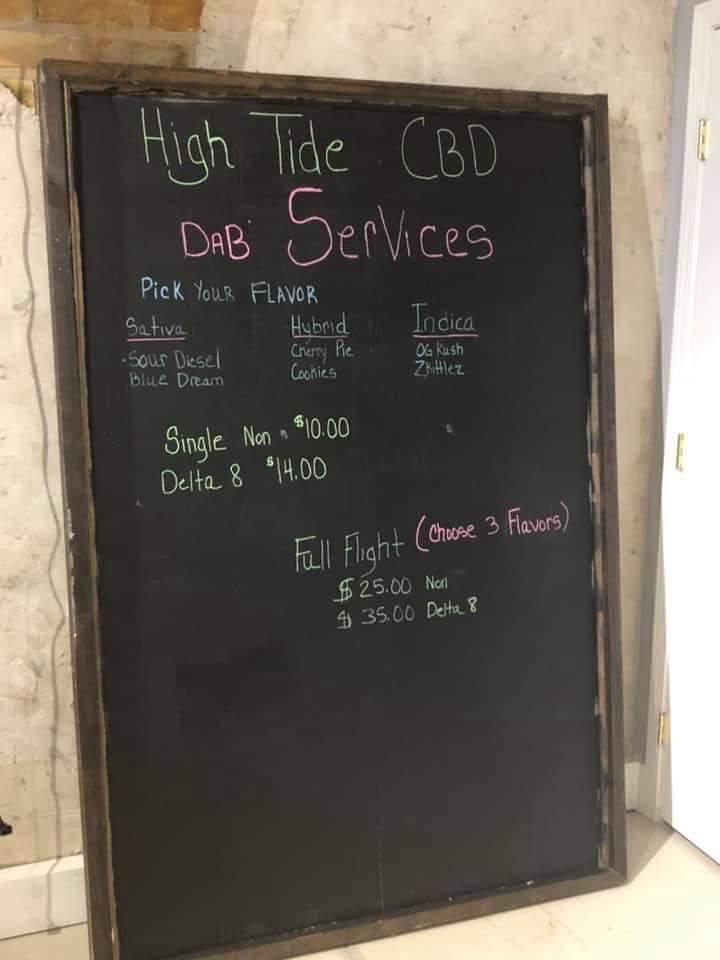 High Tide CBD
DAB Services
Pick Your Flavor
Sativa
-Sour Diesel
Blue Dream
Hybrid
Cherry Pie
Cookies
Indica
OG Kush
Zkittlez
Single Non - $10.00
Delta 8 $14.00
Full Flight (Choose 3 Flavors)
$25.00 Non
$35.00 Delta 8